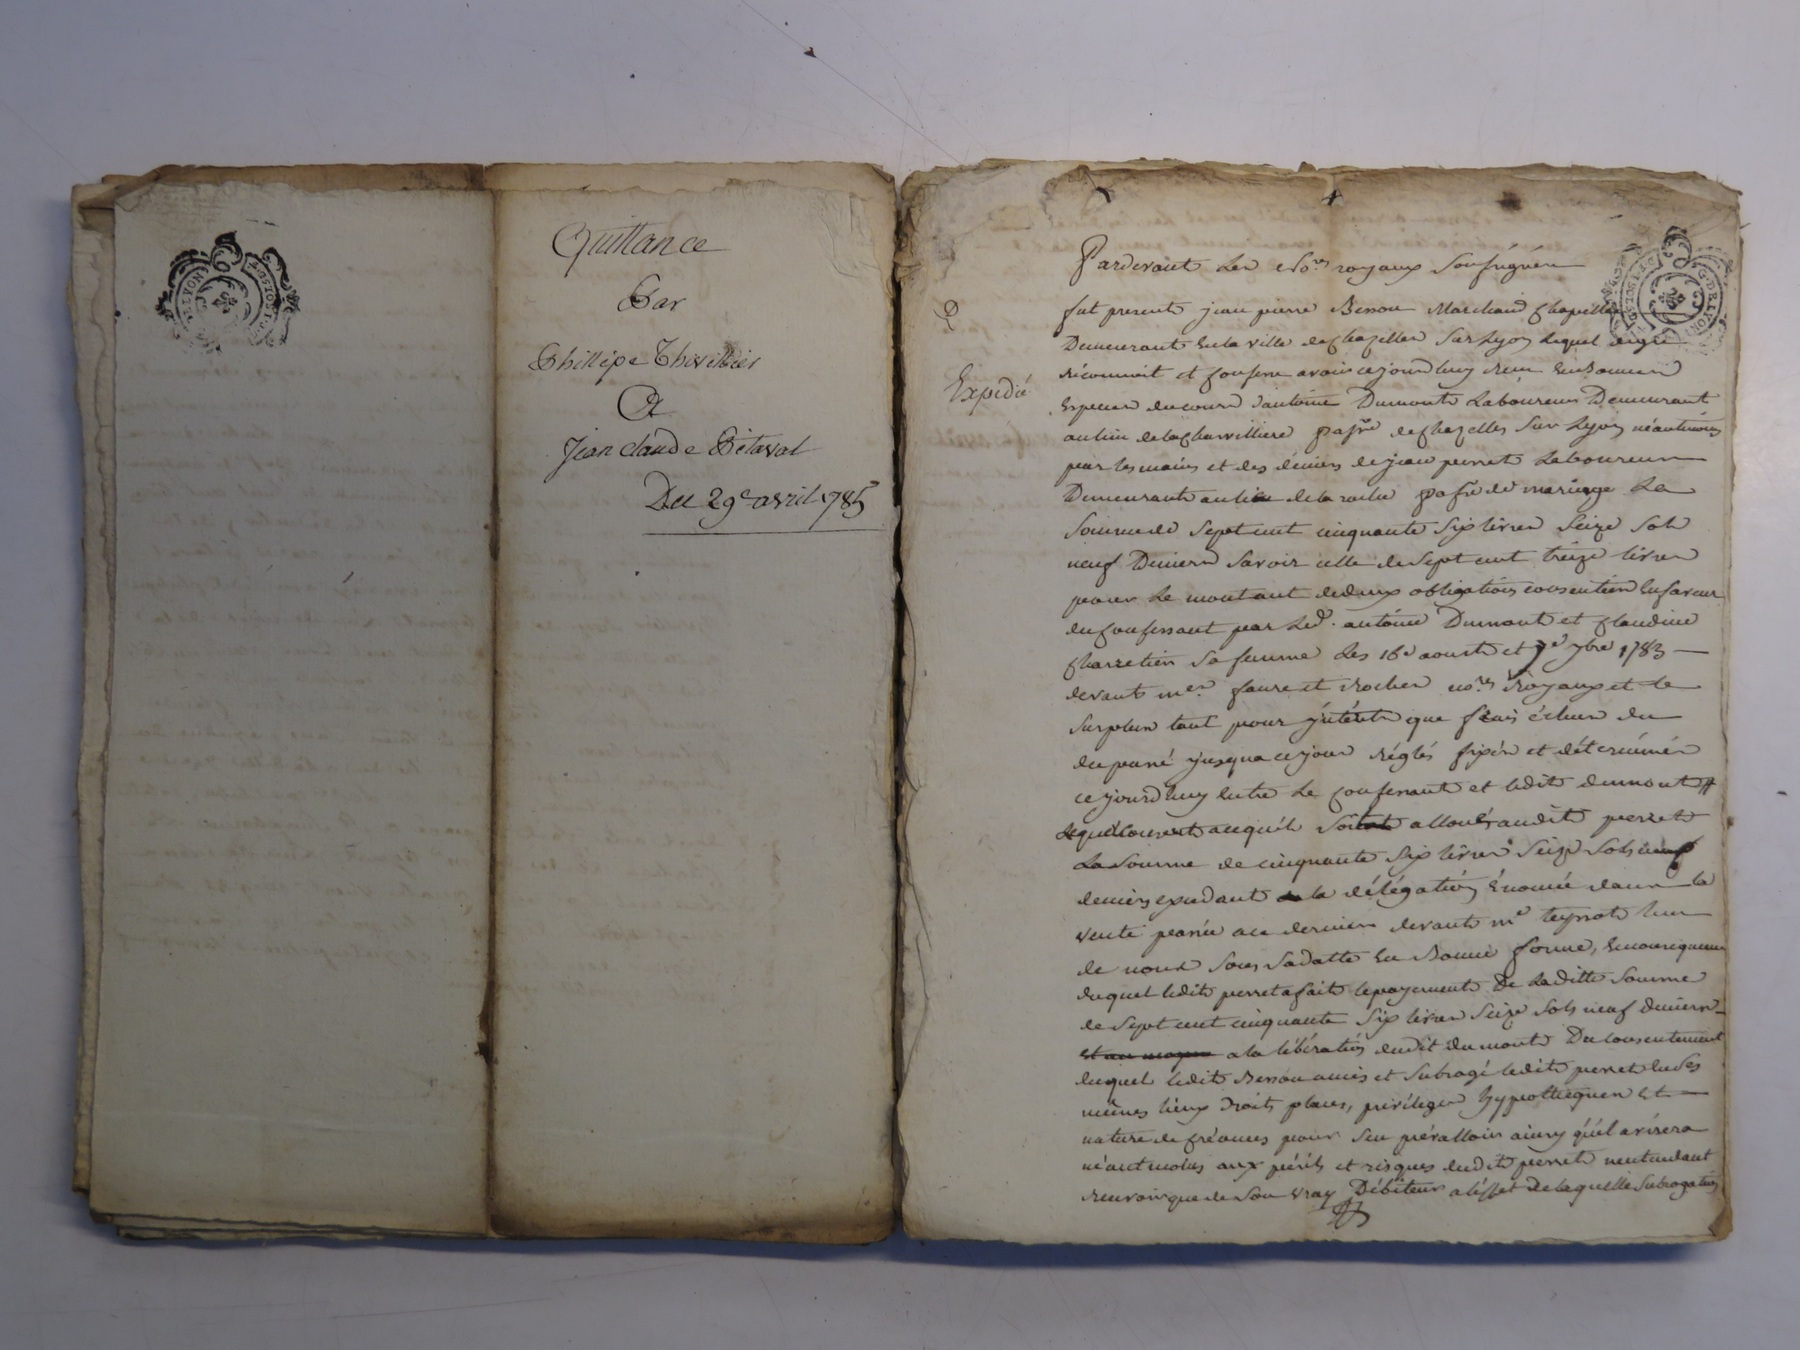 Quittance
Par
Phillipe Thivillier
A
Jean claude Pitaval
Du 29e avril 1785
Expedié
Pardevant Les No.res royaux Soussignés
fut present jean pierre Besson Marchand Chapellier
Demeurant en la ville de Chazelles Sur Lyon Lequel de gré
réconnoit et confesse avoir cejourd'huy reçu en bonnes
Especes de cours d'antoine Dumont Laboureur Demeurant
au lieu de la Charvilliere paSse de chazelles Sur Lyon néantmoins
par les mains et des déniers de jean perret Laboureur
Demeurant au lieu de la roche paSse de maringe La
Somme de Sept cent cinquante Six livres Seize Sols
neuf Deniers Savoir celle de Sept cent treize livres
pour Le montant de deux obligations consenties En faveur
du Confessant par Led. antoine Dumont et Claudine
Charretien Sa femme Les 16e aoust et 7e 7bre 1783
devant mes. faure et Rocher no.res Royaux et le
Surplus tant pour intérêts que frais échus du
du passé jusqu'a ce jour réglés fixés et déterminés
ce jourd'huy Entre Le Confessant et ledit dumont
lequel consent a ce qu'il Soit alloué audit perret
La Somme de cinquante Six livres Seize Sols neuf
deniers excedant la délégation Enoncée dans la
vente passée ce dernier devant me teyssot l'un
de nous Sous Sa datte En Bonne forme, En consequence
duquel ledit perret a fait le payement De Laditte Somme
de Sept cent cinquante Six livres Seize Sols neuf deniers
et au moyen a la libération dudit dumont Du consentement
duquel ledit Besson a mis et Subrogé ledit perret En Ses
mêmes lieux droits places, priviléges hypotheques Et
nature de créances pour S'en prévalloir ainsy qu'il avisera
néantmoins aux périls et risques dudit perret n'entendant
reuvoir que de Son vray Débiteur a l'effet de laquelle Subrogation